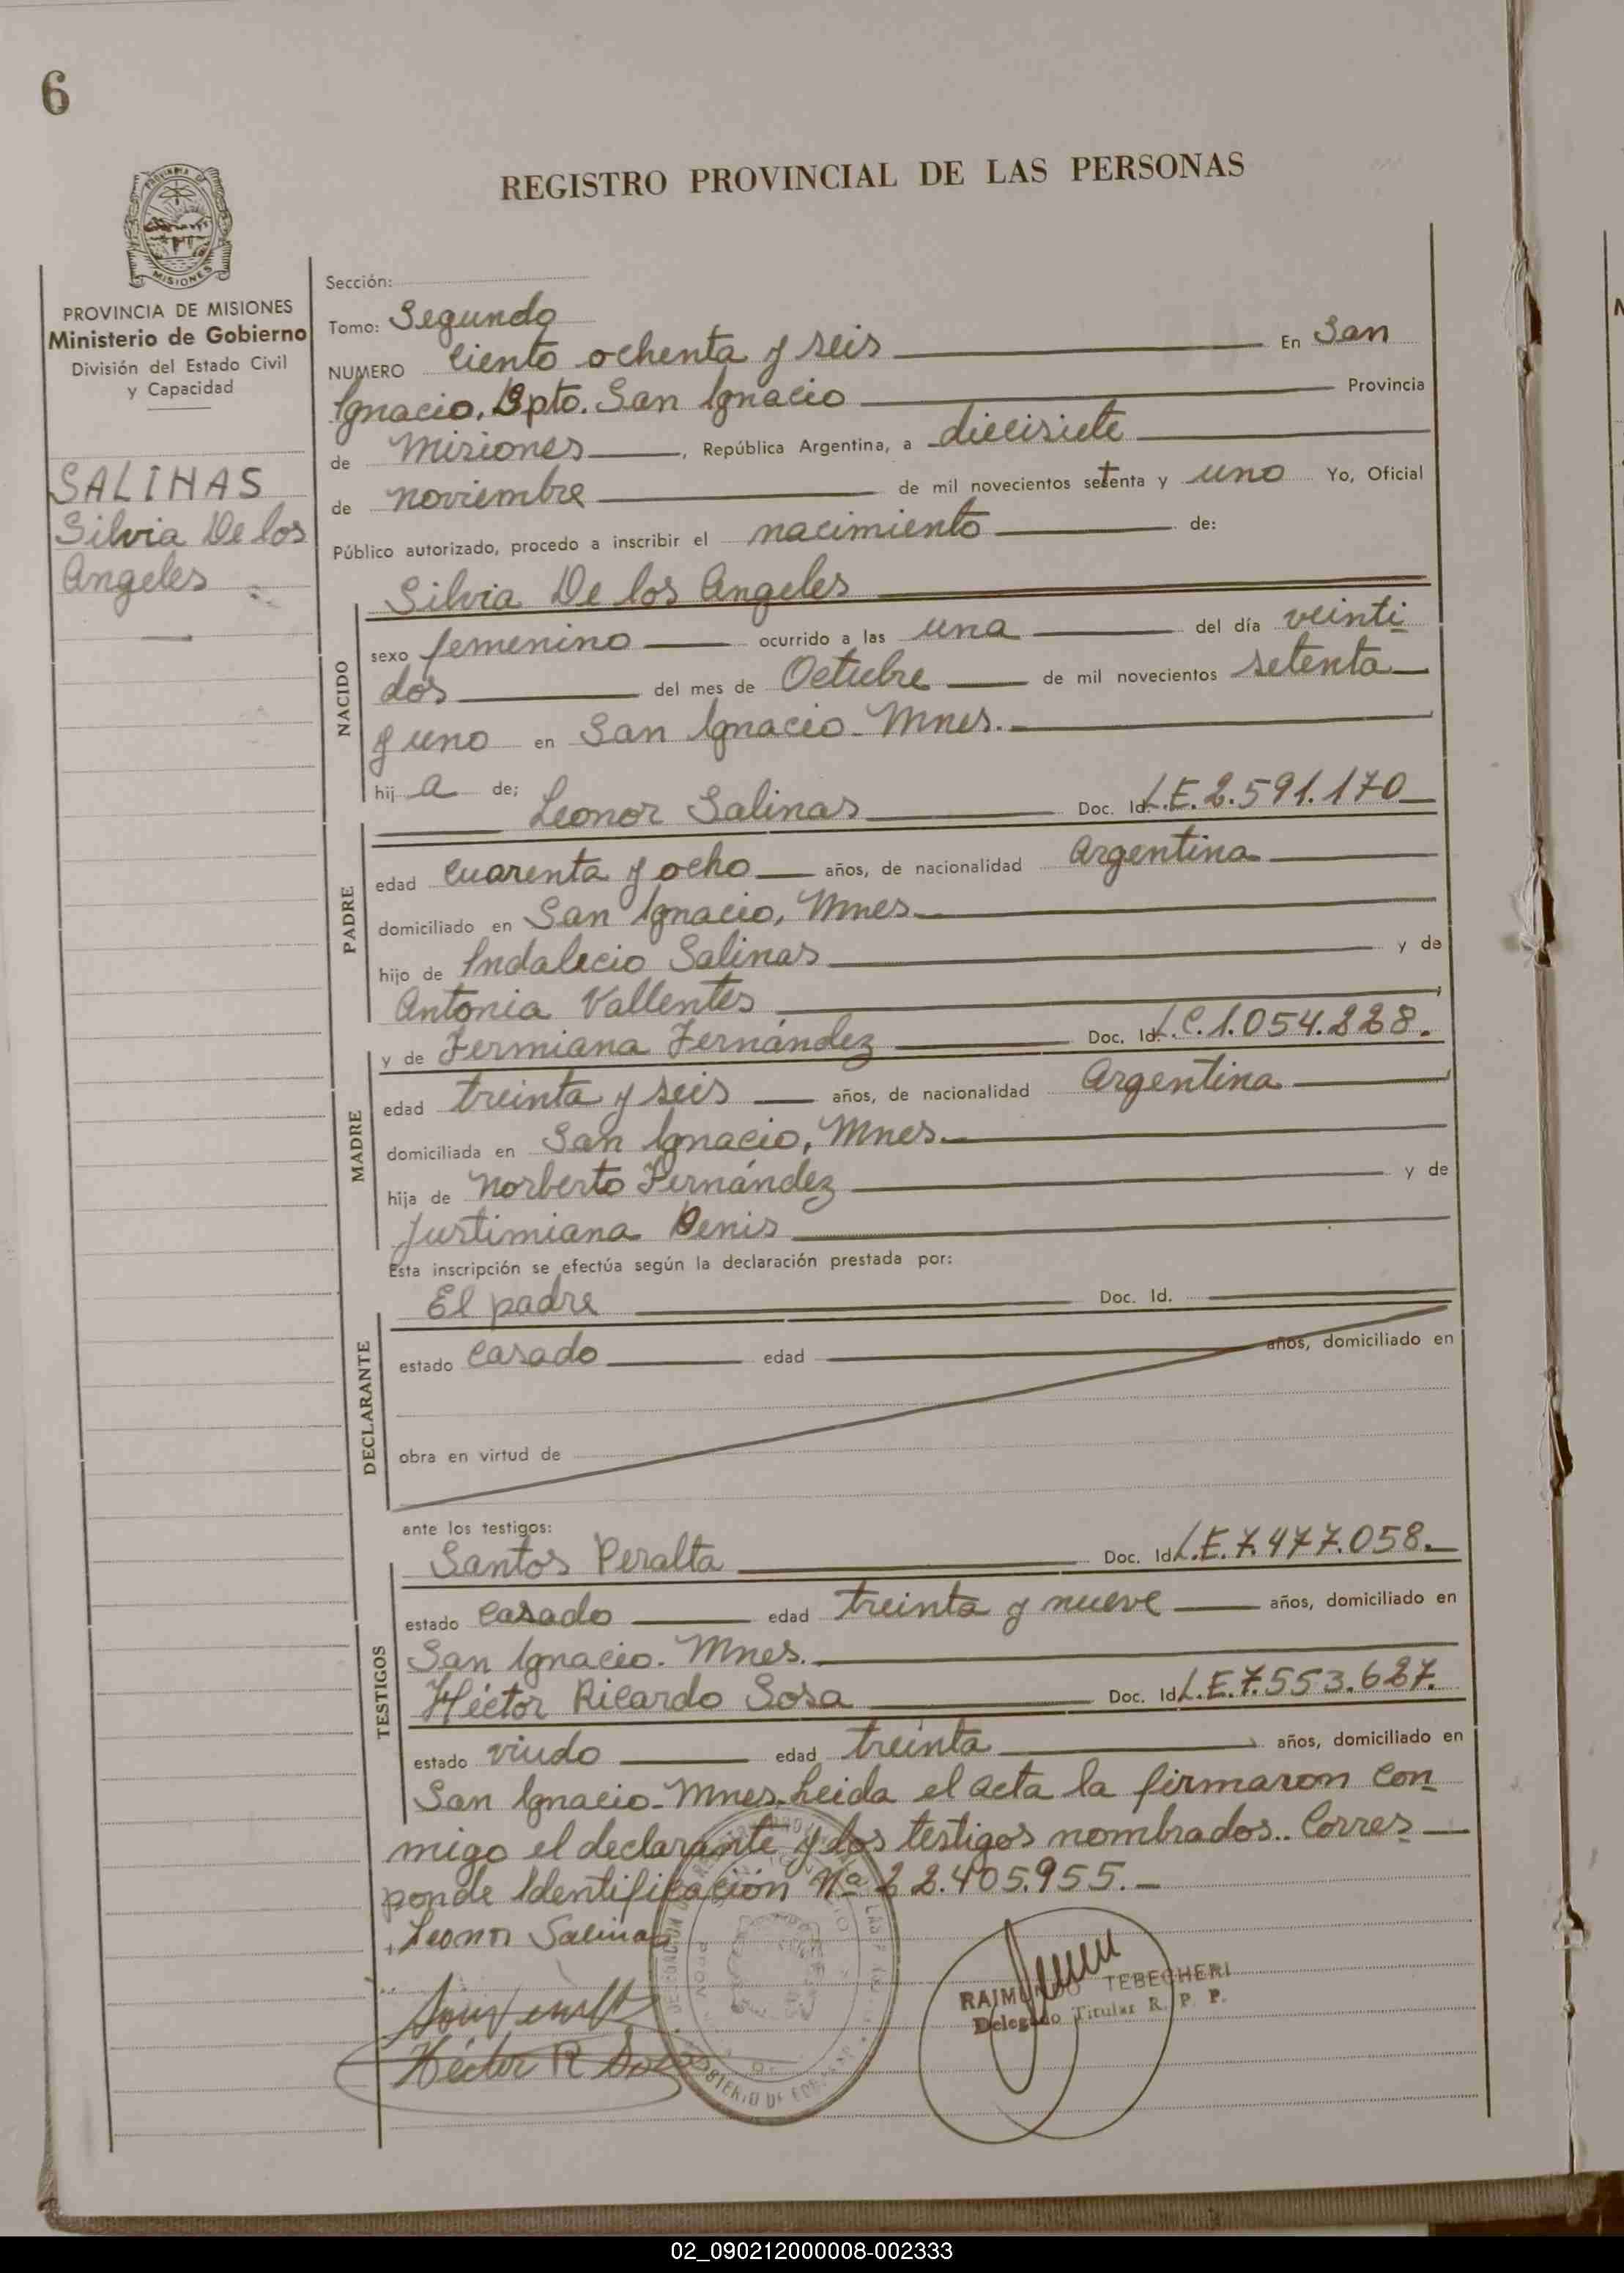 6
REGISTRO PROVINCIAL DE LAS PERSONAS
PROVINCIA DE
MISIONES
PROVINCIA DE MISIONES
Ministerio de Gobierno
División del Estado Civil
y Capacidad
SALINAS
Silvia De los
Angeles
Sección:
Tomo: Segundo
NUMERO ciento ochenta y seis En San
Ignacio, Dpto. San Ignacio Provincia
de Misiones, República Argentina, a diecisiete
de noviembre de mil novecientos setenta y uno Yo, Oficial
Público autorizado, procedo a inscribir el nacimiento de:
Silvia De los Angeles
NACIDO
sexo femenino ocurrido a las una del día veinti
dos del mes de Octubre de mil novecientos setenta
y uno en San Ignacio - Mnes.
hij a de;
Leonor Salinas Doc. Id. L.E. 2.591.170
PADRE
edad cuarenta y ocho años, de nacionalidad Argentina
domiciliado en San Ignacio, Mnes.
hijo de Indalecio Salinas y de
Antonia Vallentes
y de Fermiana Fernández Doc. Id. L.C. 1.054.228.
MADRE
edad treinta y seis años, de nacionalidad Argentina
domiciliada en San Ignacio, Mnes.
hija de Norberto Fernández y de
Justimiana Denis
Esta inscripción se efectúa según la declaración prestada por:
El padre Doc. Id.
DECLARANTE
estado casado edad años, domiciliado en
obra en virtud de
ante los testigos:
Santos Peralta Doc. Id. L.E. 7.477.058.
TESTIGOS
estado casado edad treinta y nueve años, domiciliado en
San Ignacio - Mnes.
Héctor Ricardo Sosa Doc. Id. L.E. 7.553.627.
estado viudo edad treinta años, domiciliado en
San Ignacio - Mnes. Leida el acta la firmaron con
migo el declarante y los testigos nombrados.. Corres
ponde Identificación Nº 22.405.955.-
Leonor Salinas
Héctor R Sosa
RAIMUNDO TEBECHERI
Delegado Titular R. P. P.
02_090212000008-002333